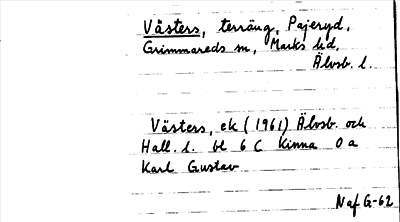 Västers, terräng, Pajeryd,
Grimmareds sn, Marks hd,
Älvsb. l.
Västers, ek (1961) Älvsb. och
Hall. l. bl 6 C Kinna 0 a
Karl Gustav
Naf G-62